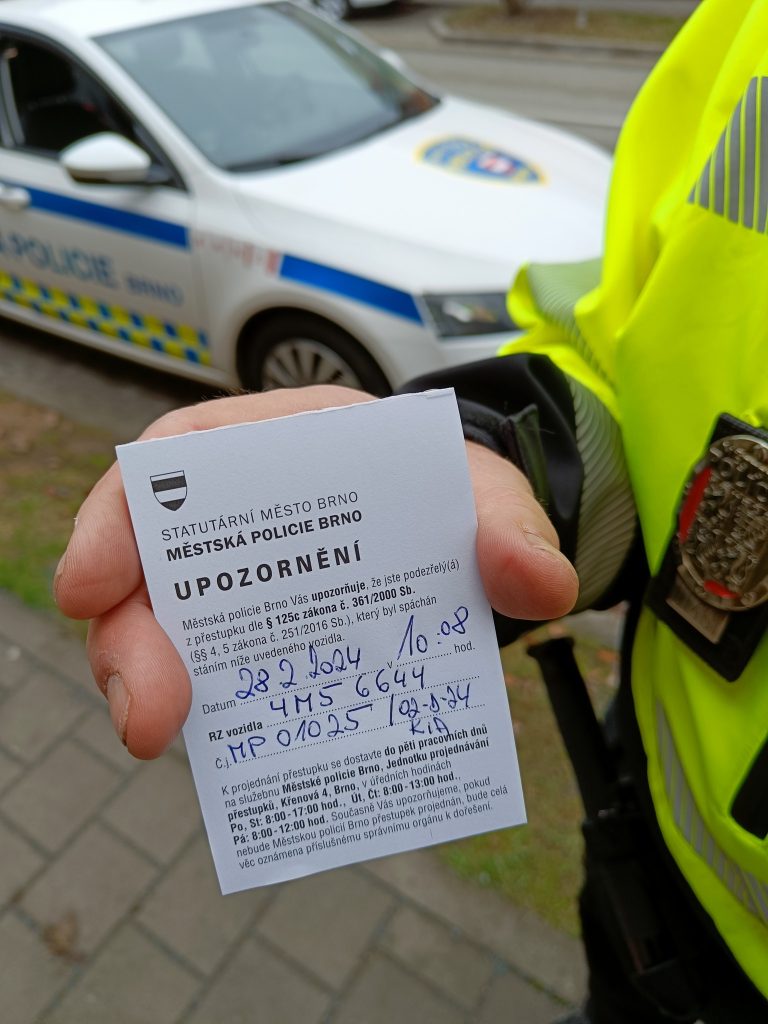 POLICIE BRNO
STATUTÁRNÍ MĚSTO BRNO
MĚSTSKÁ POLICIE BRNO
UPOZORNĚNÍ
Městská policie Brno Vás upozorňuje, že jste podezřelý(á)
z přestupku dle § 125c zákona č. 361/2000 Sb.
(§§ 4, 5 zákona č. 251/2016 Sb.), který byl spáchán
stáním níže uvedeného vozidla.
Datum 28 2. 2024 v 10.08 hod.
RZ vozidla 4M5 6644
Č.j. MP 01025 /02-8-24
KIA
K projednání přestupku se dostavte do pěti pracovních dnů
na služebnu Městské policie Brno, Jednotku projednávání
přestupků, Křenová 4, Brno, v úředních hodinách
Po, St: 8:00-17:00 hod., Út, Čt: 8:00-13:00 hod.,
Pá: 8:00-12:00 hod. Současně Vás upozorňujeme, pokud
nebude Městskou policií Brno přestupek projednán, bude celá
věc oznámena příslušnému správnímu orgánu k dořešení.